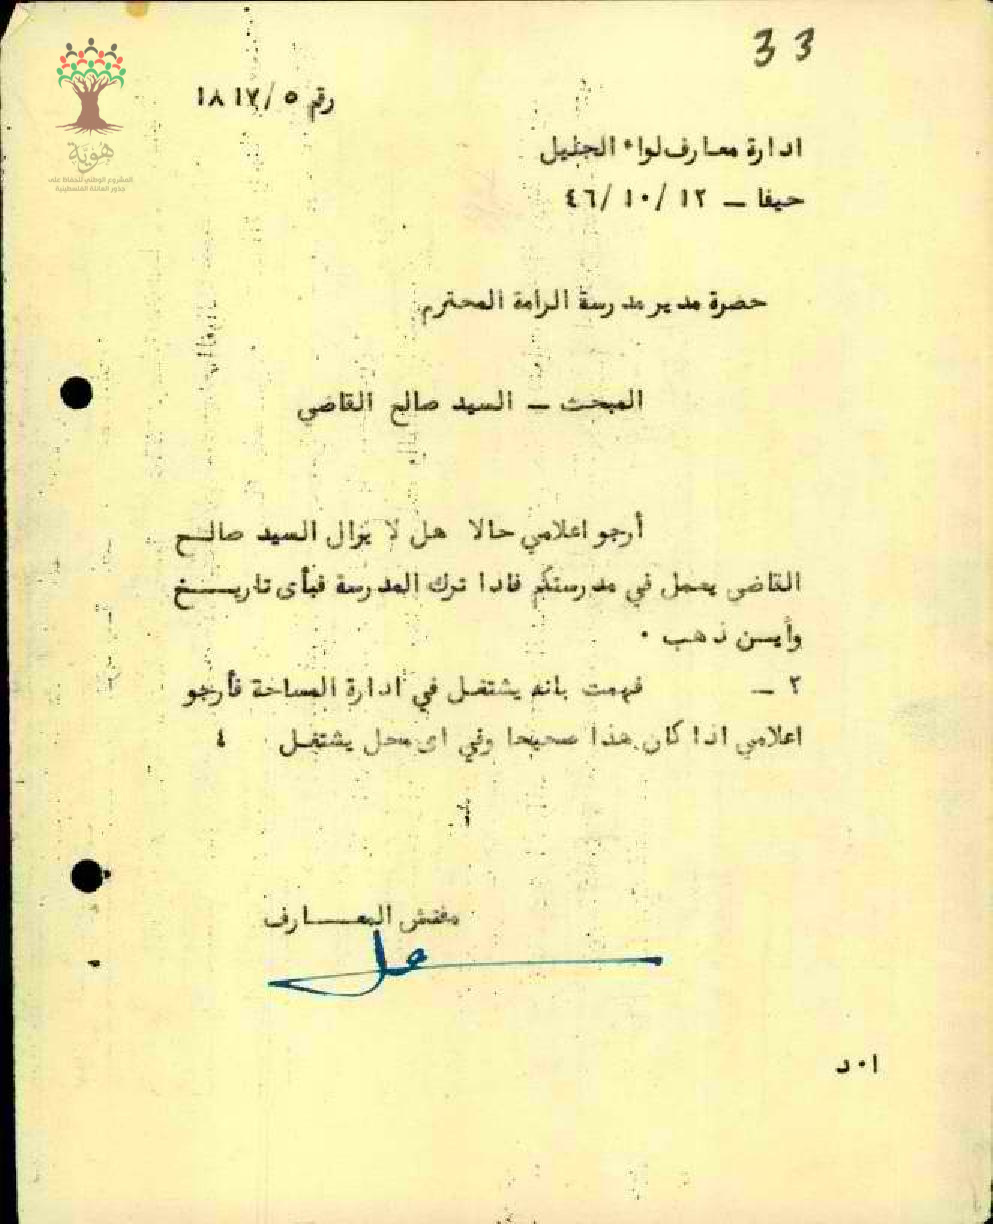 33
هوية
المشروع الوطني للحفاظ على
جذور العائلة الفلسطينية
رقم ٥ /١٨١٧
ادارة معارف لواء الجليل
حيفا – ١٢ /١٠ /٤٦
حضرة مدير مدرسة الرامة المحترم
المبحث – السيد صالح القاضي
أرجو اعلامي حالا هل لا يزال السيد صالـح
القاضي يعمل في مدرستكم فاذا ترك المدرسة فبأى تاريـــخ
وأيـن ذهب ٠
٢ – فهمت بانه يشتغل في ادارة المساحة فأرجو
اعلامي اذا كان هذا صحيحا وفي اى محل يشتغل ٤
مفتش المعــــارف
ا٠د